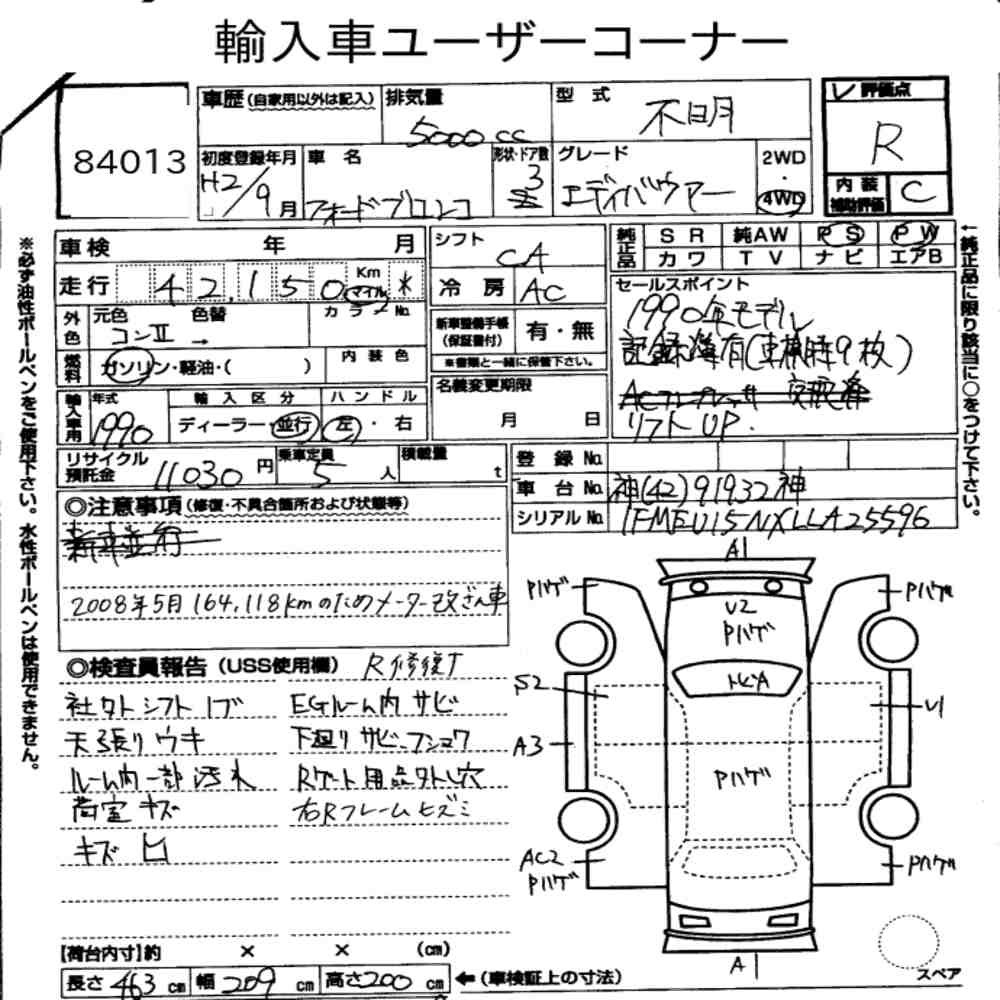 輸入車ユーザーコーナー
84013
車歴(自家用以外は記入) 排気量 5000cc 型式 不明 評価点 R
初度登録年月 H2/9月 車名 フォードブロンコ 形状・ドア数 3 グレード エディバウアー 2WD・4WD 内装補助評価 C
※必ず油性ボールペンをご使用下さい。水性ボールペンは使用できません。
←純正品に限り該当に○をつけて下さい。
車検 年 月 シフト CA 純正品 SR 純AW PS PW
カワ TV ナビ エアB
走行 42,150 Km マイル * 冷房 AC
外色 元色 コンⅡ → 色替 カラーNo. 新車整備手帳(保証書付) 有・無
※書類と一緒に保管下さい。
燃料 ガソリン・軽油・( ) 内装色 名義変更期限 月 日
セールスポイント
1990年モデル
記録簿有(車検時9枚)
ACコンプレッサ 交換済
リフトUP.
輸入車用 年式 1990 輸入区分 ディーラー・並行 ハンドル 左・右
リサイクル預託金 11030円 乗車定員 5人 積載量 t
登録No.
車台No. 神(42)91932神
シリアルNo. 1FMEU15NXLLA25596
◎注意事項(修復・不具合箇所および状態等)
新車並行
2008年5月 164,118kmのためメーター改ざん車
◎検査員報告(USS使用欄) R修復了
社外シフトノブ EGルーム内サビ
天張りウキ 下廻りサビ、フショク
ルーム内一部汚れ Rゲート用品外し穴
荷室キズ 右Rフレームヒズミ
キズ ヒ
A1
Pハゲ Pハゲ
U2
Pハゲ
トビA
S2
U1
A3
Pハゲ
AC2
Pハゲ
Pハゲ
A1
スペア
【荷台内寸】約 × × (cm)
長さ 463cm 幅 209cm 高さ 200cm ←(車検証上の寸法)